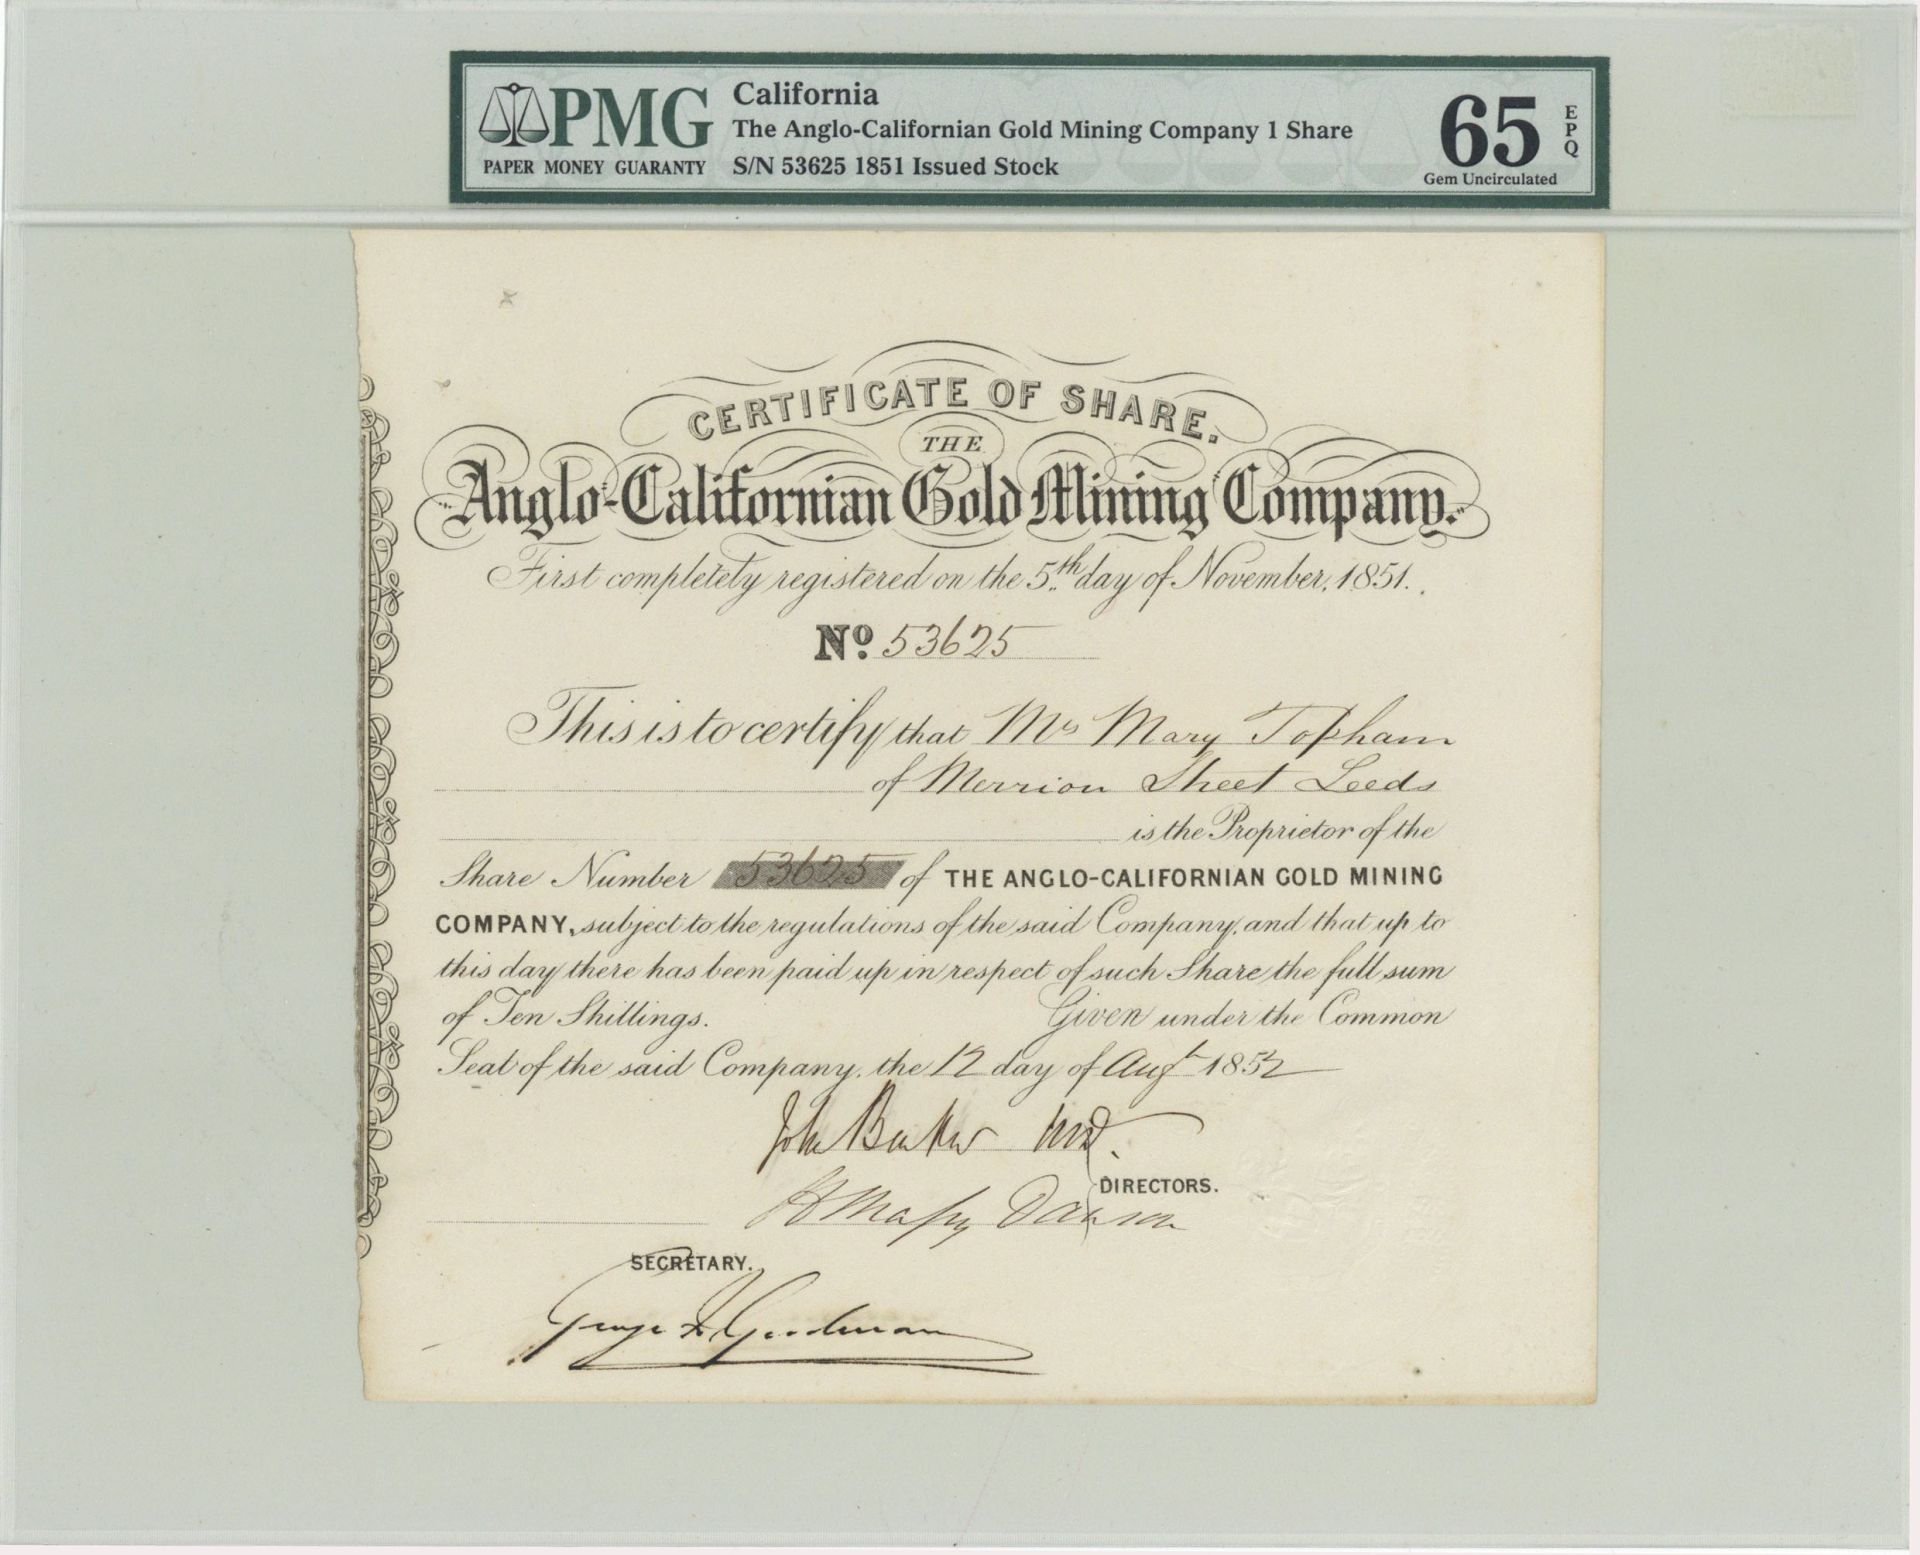 PMG
PAPER MONEY GUARANTY
California
The Anglo-Californian Gold Mining Company 1 Share
S/N 53625 1851 Issued Stock
65 EPQ
Gem Uncirculated
CERTIFICATE OF SHARE.
THE
Anglo-Californian Gold Mining Company.
First completely registered on the 5th day of November, 1851.
No. 53625
This is to certify that Mrs Mary Topham
of Merrion Street Leeds
is the Proprietor of the
Share Number 53625 of THE ANGLO-CALIFORNIAN GOLD MINING
COMPANY, subject to the regulations of the said Company, and that up to
this day there has been paid up in respect of such Share the full sum
of Ten Shillings. Given under the Common
Seal of the said Company, the 12 day of Augt 1852
John
DIRECTORS.
SECRETARY.
George Goodman